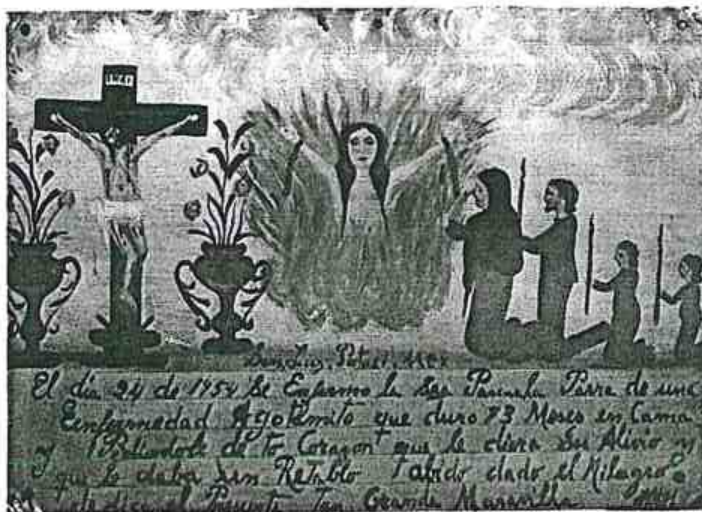 INRI
San Luis, Potosi, Mex
El dia 24 de 1954 Se Enfermo la Sra Pascuala Parra de una
Enfermedad que duro 73 Meses en Cama
y Pidiendole de to Corazon que le diera Su Alivio y
que le daba un Retablo abido dado el Milagro
dedica el Presente Tan Grande Maravilla